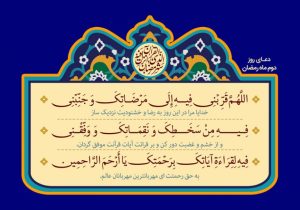 دعای روز
دوم ماه رمضان
اللَّهُمَّ قَرِّبْنِي فِيهِ إِلَى مَرْضَاتِكَ وَ جَنِّبْنِي
خدایا مرا در این روز به رضا و خشنودیت نزدیک ساز
فِيهِ مِنْ سَخَطِكَ وَ نَقِمَاتِكَ وَ وَفِّقْنِي
و از خشم و غضبت دور کن و بر قرائت آیات قرآنت موفق گردان،
فِيهِ لِقِرَاءَةِ آيَاتِكَ بِرَحْمَتِكَ يَا أَرْحَمَ الرَّاحِمِينَ
به حق رحمتت ای مهربانترین مهربانان عالم.